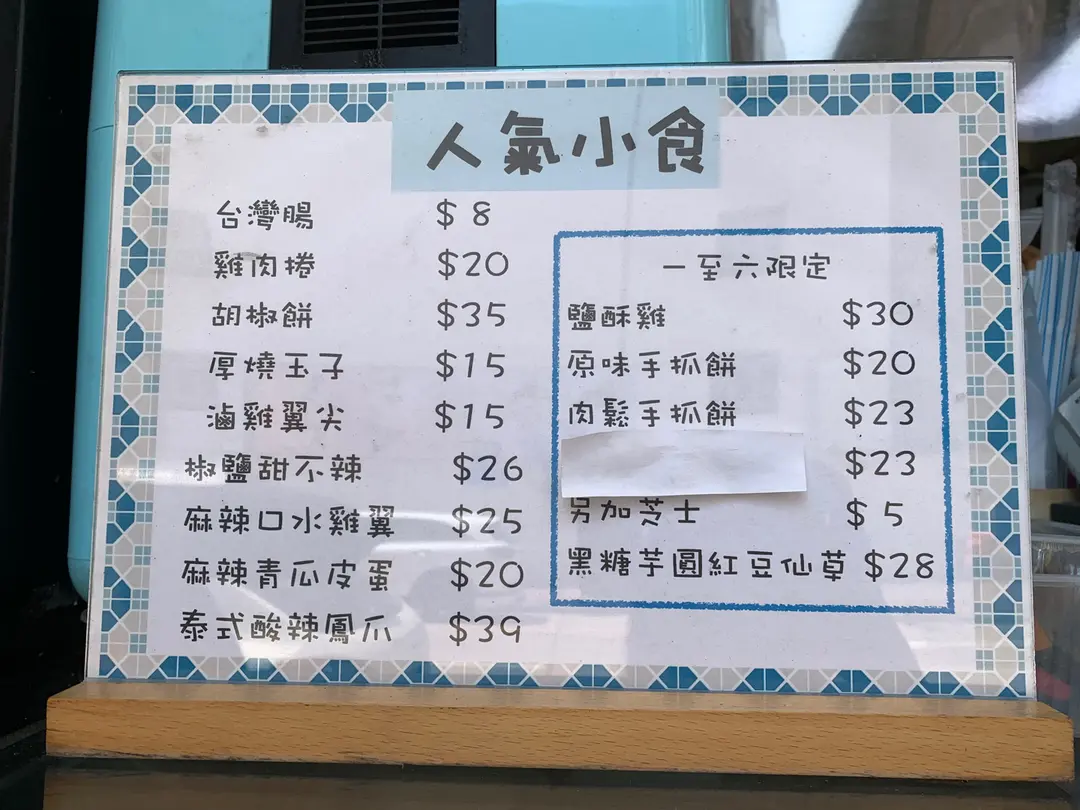 人氣小食
台灣腸 $8
雞肉捲 $20
胡椒餅 $35
厚燒玉子 $15
滷雞翼尖 $15
椒鹽甜不辣 $26
麻辣口水雞翼 $25
麻辣青瓜皮蛋 $20
泰式酸辣鳳爪 $39
一至六限定
鹽酥雞 $30
原味手抓餅 $20
肉鬆手抓餅 $23
$23
另加芝士 $5
黑糖芋圓紅豆仙草 $28